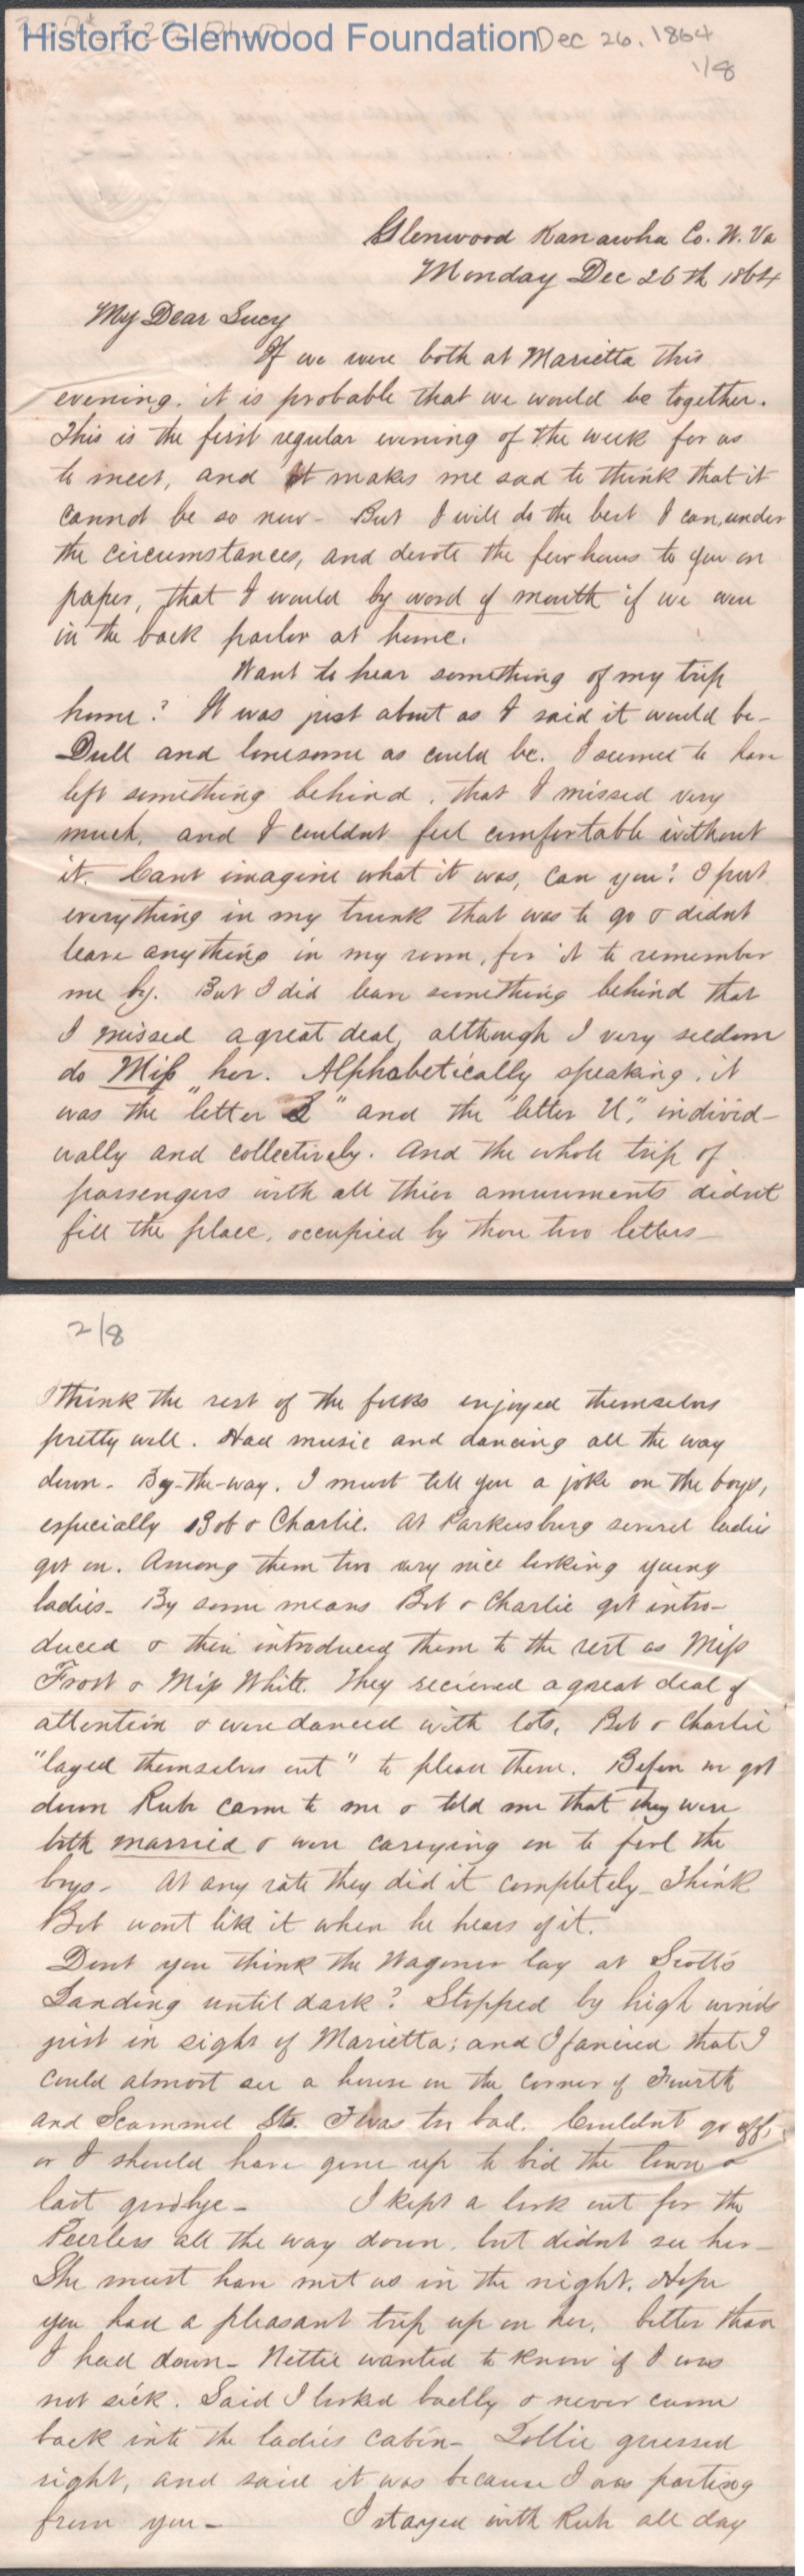 Historic Glenwood Foundation Dec 26, 1864
1/8
Glenwood Kanawha Co. W. Va
Monday Dec 26th 1864
My Dear Lucy
If we were both at Marietta this
evening, it is probable that we would be together.
This is the first regular evening of the week for us
to meet, and it makes me sad to think that it
cannot be so now - But I will do the best I can, under
the circumstances, and devote the few hours to you on
paper, that I would by word of mouth if we were
in the back parlor at home.
Want to hear something of my trip
home? It was just about as I said it would be -
Dull and lonesome as could be. I seemed to have
left something behind, that I missed very
much, and I couldnt feel comfortable without
it. Cant imagine what it was, can you? I put
everything in my trunk that was to go & didnt
leave anything in my room, for it to remember
me by. But I did leave something behind that
I missed a great deal, although I very seldom
do Miss her. Alphabetically speaking, it
was the "letter L" and the "letter U", individ-
ually and collectively. And the whole trip of
passengers with all thier amusements didnt
fill the place, occupied by those two letters -
2/8
I think the rest of the folks enjoyed themselves
pretty well. Had music and dancing all the way
down - By-the-way, I must tell you a joke on the boys,
especially Bob & Charlie. At Parkersburg several ladies
got on. Among them two very nice looking young
ladies - By some means Bob & Charlie got intro-
duced & then introduced them to the rest as Miss
Frost & Miss White. They recieved a great deal of
attention & were danced with lots, Bob & Charlie
"layed themselves out" to please them. Before we got
down Rub came to me & told me that they were
both married & were carrying on to fool the
boys - At any rate they did it completely - Think
Bob wont like it when he hears of it.
Dont you think the Wagoner lay at Scott's
Landing until dark? Stopped by high winds
just in sight of Marietta; and I fancied that I
could almost see a house on the corner of Fourth
and Scammel Sts. T'was too bad. Couldnt go off,
or I should have gone up to bid the town a
last goodbye - I kept a look out for the
Peerless all the way down, but didnt see her -
She must have met us in the night. Hope
you had a pleasant trip up on her, better than
I had down - Nettie wanted to know if I was
not sick. Said I looked badly & never came
back into the ladies cabin - Lollie guessed
right, and said it was because I was parting
from you - I stayed with Rub all day